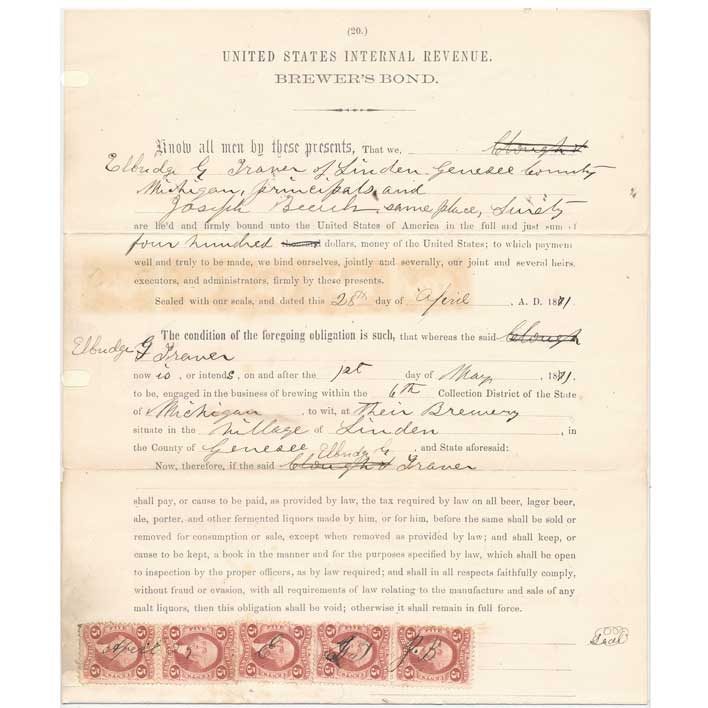 (20.)
UNITED STATES INTERNAL REVENUE.
BREWER'S BOND.
Know all men by these presents, That we, Clough &
Elbridge G Traver of Linden Genesee County
Michigan, principals and
Joseph Beach same place, Surety
are held and firmly bound unto the United States of America in the full and just sum of
four hundred dollars, money of the United States; to which payment
well and truly to be made, we bind ourselves, jointly and severally, our joint and several heirs,
executors, and administrators, firmly by these presents.
Sealed with our seals, and dated this 28th day of April , A. D. 1871
The condition of the foregoing obligation is such, that whereas the said Clough
Elbridge G Traver
now is, or intends, on and after the 1st day of May , 1871,
to be, engaged in the business of brewing within the 6th Collection District of the State
of Michigan , to wit, at their Brewery
situate in the Village of Linden , in
the County of Genesee , and State aforesaid:
Elbridge G
Now, therefore, if the said Clough & Traver
shall pay, or cause to be paid, as provided by law, the tax required by law on all beer, lager beer,
ale, porter, and other fermented liquors made by him, or for him, before the same shall be sold or
removed for consumption or sale, except when removed as provided by law; and shall keep, or
cause to be kept, a book in the manner and for the purposes specified by law, which shall be open
to inspection by the proper officers, as by law required; and shall in all respects faithfully comply,
without fraud or evasion, with all requirements of law relating to the manufacture and sale of any
malt liquors, then this obligation shall be void; otherwise it shall remain in full force.
Seal
5 5 5 5 5 5 5 5 5 5
J. B